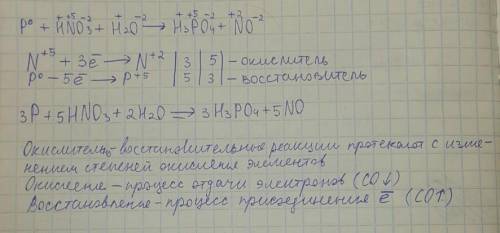 P⁰ + H⁺N⁺⁵O₃⁻² + H₂⁺O⁻² → H₃⁺P⁺⁵O₄⁻² + N⁺²O⁻²
N⁺⁵ + 3ē → N⁺² | 3 | 5 | – окислитель
P⁰ – 5ē → P⁺⁵ | 5 | 3 | – восстановитель
3P + 5HNO₃ + 2H₂O ⇒ 3H₃PO₄ + 5NO
Окислительно-восстановительные реакции протекают с изме-
нением степеней окисления элементов
Окисление – процесс отдачи электронов (CO↓)
Восстановление – процесс присоединения ē (CO↑)